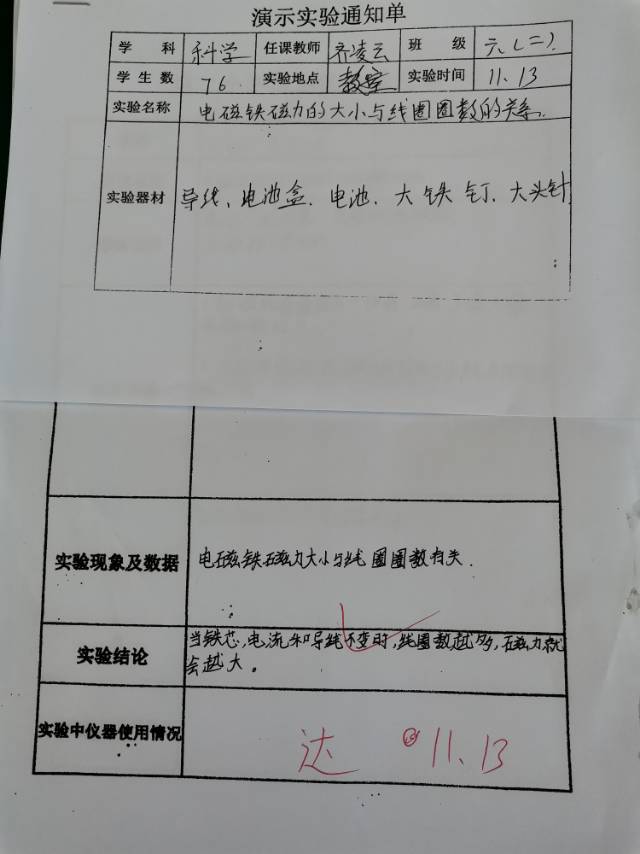 演示实验通知单
学 科 科学 任课教师 齐凌云 班 级 六(二)
学生数 76 实验地点 教室 实验时间 11.13
实验名称 电磁铁磁力的大小与线圈圈数的关系.
实验器材 导线、电池盒.电池.大铁钉.大头针
实验现象及数据 电磁铁磁力大小与线圈圈数有关.
实验结论 当铁芯,电流和导线不变时,线圈数越多,磁力就
会越大。
实验中仪器使用情况 达 11.13